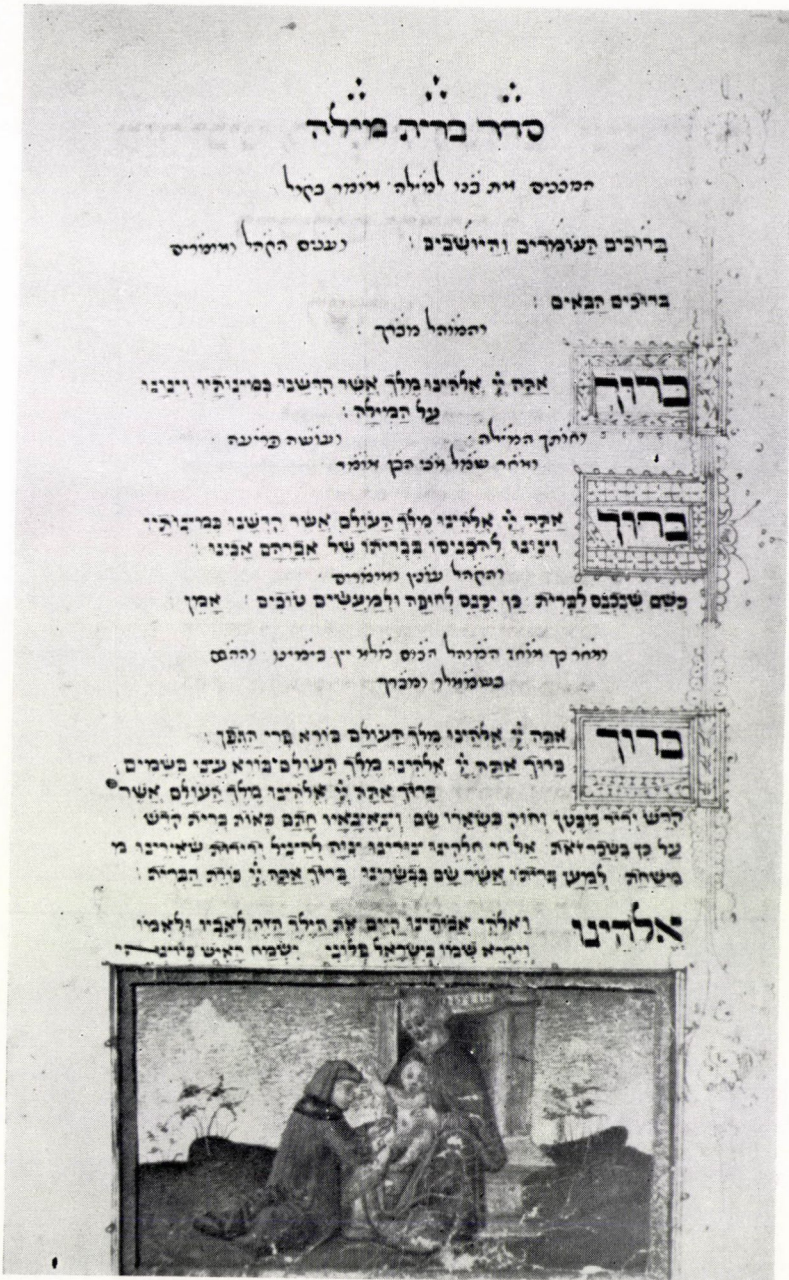 סדר ברית מילה
המכניס את בנו למילה אומר בקול
ברוכים העומדים והיושבים : ועונים הקהל ואומרים
ברוכים הבאים :
והמוהל מברך :
ברוך אתה יי אלהינו מלך אשר קדשנו במצותיו וצונו
על המילה :
וחותך המילה ועושה פריעה
ואחר שמל אבי הבן אומר
ברוך אתה יי אלהינו מלך העולם אשר קדשנו במצותיו
וצונו להכניסו בבריתו של אברהם אבינו :
והקהל עונין ואומרים
כשם שנכנס לברית כן יכנס לחופה ולמעשים טובים : אמן
ואחר כך אוחז המוהל הכוס מלא יין בימינו וההדס
בשמאלו ומברך
ברוך אתה יי אלהינו מלך העולם בורא פרי הגפן :
ברוך אתה יי אלהינו מלך העולם בורא עצי בשמים :
ברוך אתה יי אלהינו מלך העולם אשר
קדש ידיד מבטן וחוק בשארו שם וצאצאיו חתם באות ברית קדש
על כן בשכר זאת אל חי חלקינו צורינו צוה להציל ידידות שארינו מ
משחת למען בריתו אשר שם בבשרינו ברוך אתה יי כורת הברית :
אלהינו ואלהי אבותינו קיים את הילד הזה לאביו ולאמו
ויקרא שמו בישראל פלוני ישמח האיש